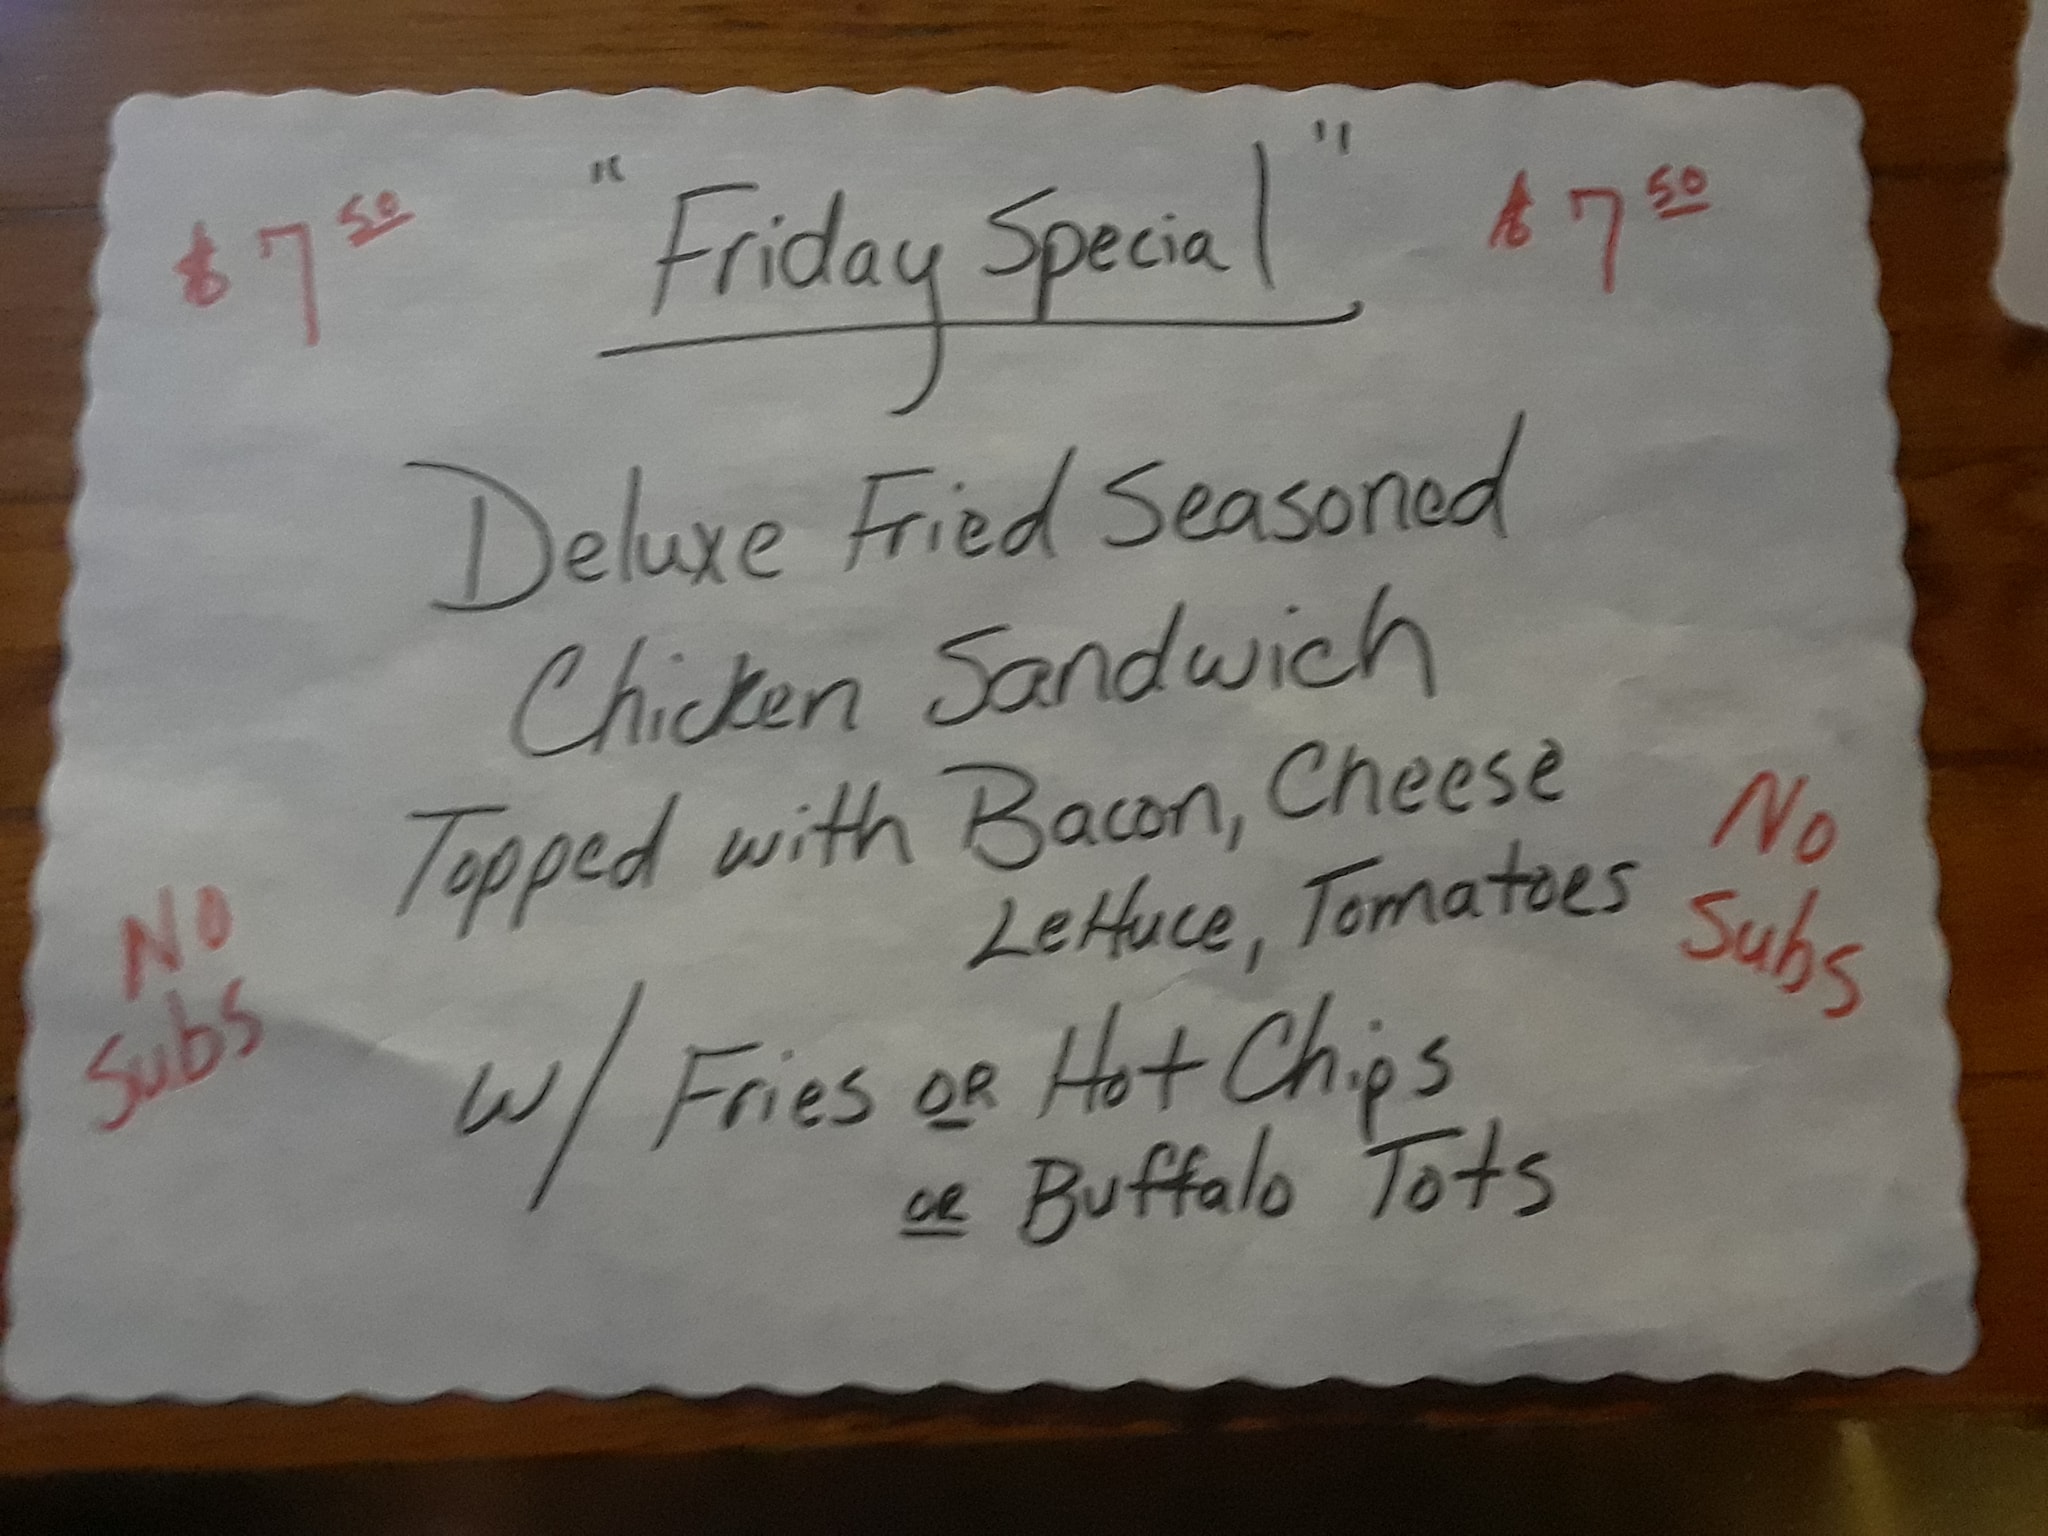 $7.50 "Friday Special" $7.50
Deluxe Fried Seasoned
Chicken Sandwich
Topped with Bacon, Cheese
Lettuce, Tomatoes
No
Subs
No
Subs
w/ Fries OR Hot Chips
OR Buffalo Tots